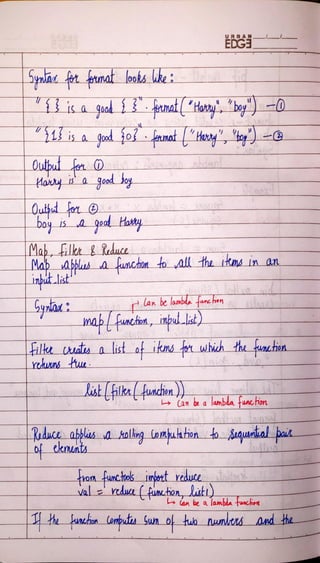 URBAN
EDGE
Syntax for format looks like :
"{ } is a good { }" . format ( "Harry", "boy") —①
"{1} is a good {0}" . format ( "Harry", "boy") —②
Output for ①
Harry is a good boy
Output for ②
boy is a good Harry
Map, Filter & Reduce
Map applies a function to all the items in an
input_list
Syntax :
Can be lambda function
map ( function, input_list)
Filter creates a list of items for which the function
returns true.
list ( filter ( function ))
Can be a lambda function
Reduce applies a rolling computation to sequential pair
of elements
from functools import reduce
val = reduce ( function, list1)
Can be a lambda function
If the function computes sum of two numbers and the